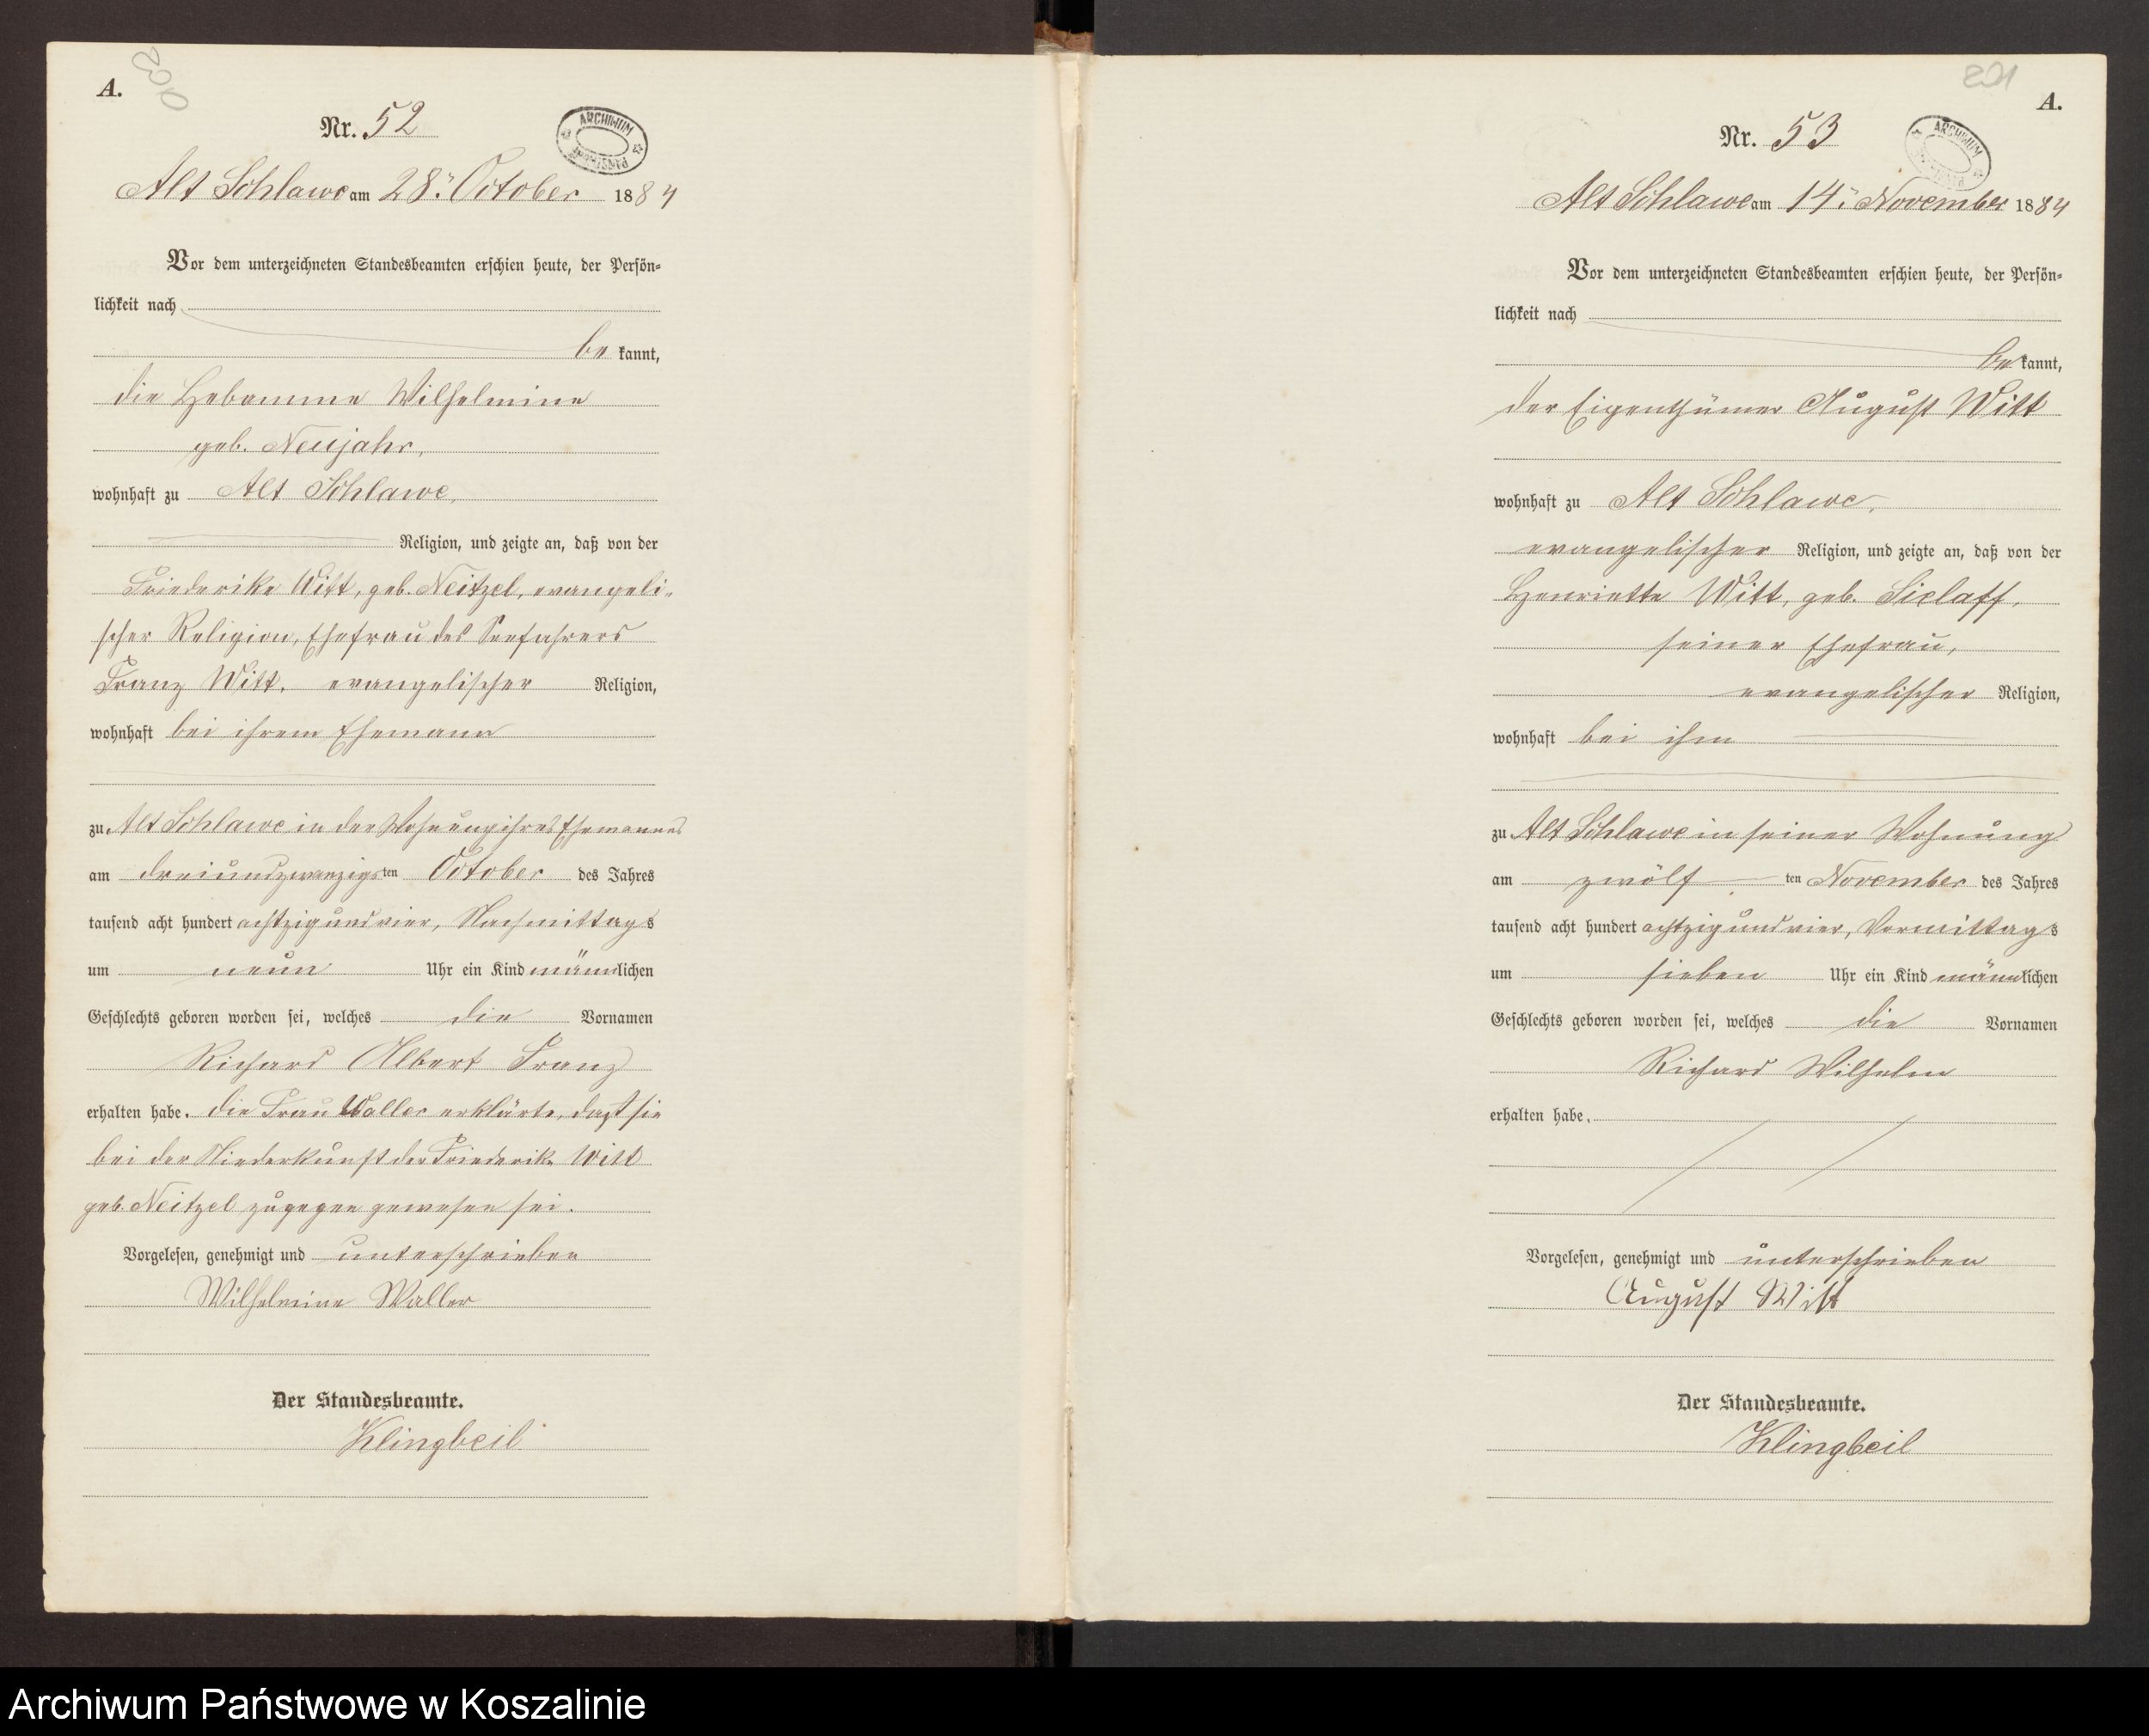 A.
200
Nr. 52
ARCHIWUM PAŃSTWOWE
Alt Schlawe am 28. October 1884
Vor dem unterzeichneten Standesbeamten erschien heute, der Persön-
lichkeit nach
be kannt,
die Hebamme Wilhelmine
geb. Neujahr,
wohnhaft zu Alt Schlawe,
Religion, und zeigte an, daß von der
Friederike Witt, geb. Neitzel, evangeli-
scher Religion, Ehefrau des Seefahrers
Franz Witt, evangelischer Religion,
wohnhaft bei ihrem Ehemann
zu Alt Schlawe in der Wohnung ihres Ehemannes
am dreiundzwanzigsten October des Jahres
tausend acht hundert achtzig und vier, Nachmittags
um neun Uhr ein Kind männlichen
Geschlechts geboren worden sei, welches die Vornamen
Richard Albert Franz
erhalten habe. Die Frau Waller erklärte, daß sie
bei der Niederkunft der Friederike Witt
geb. Neitzel zugegen gewesen sei.
Vorgelesen, genehmigt und unterschrieben
Wilhelmine Waller
Der Standesbeamte.
Klingbeil
201
A.
Nr. 53
ARCHIWUM
Alt Schlawe am 14. November 1884
Vor dem unterzeichneten Standesbeamten erschien heute, der Persön-
lichkeit nach
be kannt,
der Eigenthümer August Witt
wohnhaft zu Alt Schlawe,
evangelischer Religion, und zeigte an, daß von der
Henriette Witt, geb. Sielaff,
seiner Ehefrau,
evangelischer Religion,
wohnhaft bei ihm
zu Alt Schlawe in seiner Wohnung
am zwölf ten November des Jahres
tausend acht hundert achtzig und vier, Vormittags
um sieben Uhr ein Kind männlichen
Geschlechts geboren worden sei, welches die Vornamen
Richard Wilhelm
erhalten habe.
Vorgelesen, genehmigt und unterschrieben
August Witt
Der Standesbeamte.
Klingbeil
Archiwum Państwowe w Koszalinie